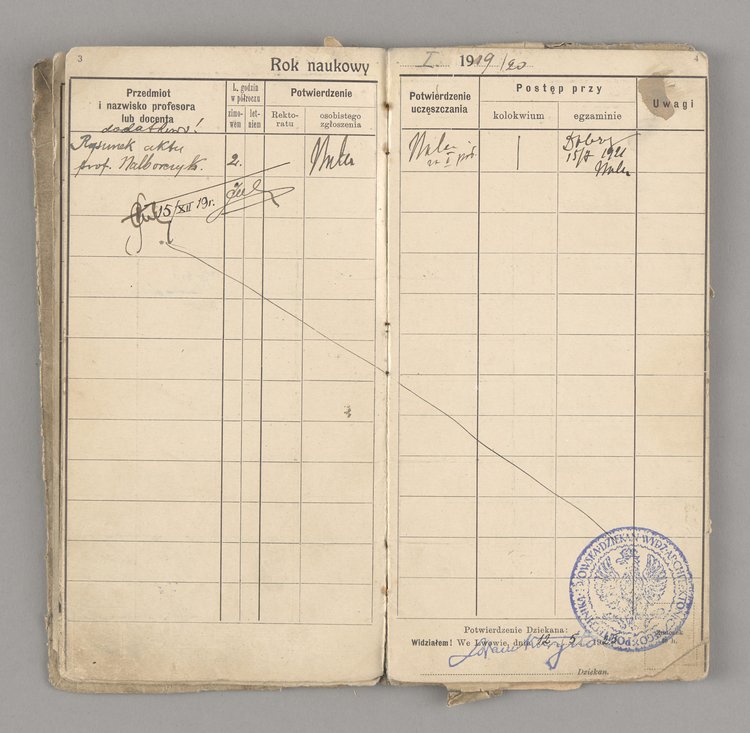 3
Rok naukowy
Przedmiot
i nazwisko profesora
lub docenta
L. godzin
w półroczu
zimo-
wem
let-
niem
Potwierdzenie
Rekto-
ratu
osobistego
zgłoszenia
dodatkowo!
Rysunek aktu
prof. Nalborczyk.
2.
15/XII 19r.
4
I. 1919/20
Potwierdzenie
uczęszczania
Postęp przy
kolokwium
egzaminie
Uwagi
za I pół.
Dobry
15/7 1921
Potwierdzenie Dziekana:
Widziałem! We Lwowie, dnia
Dziekan.